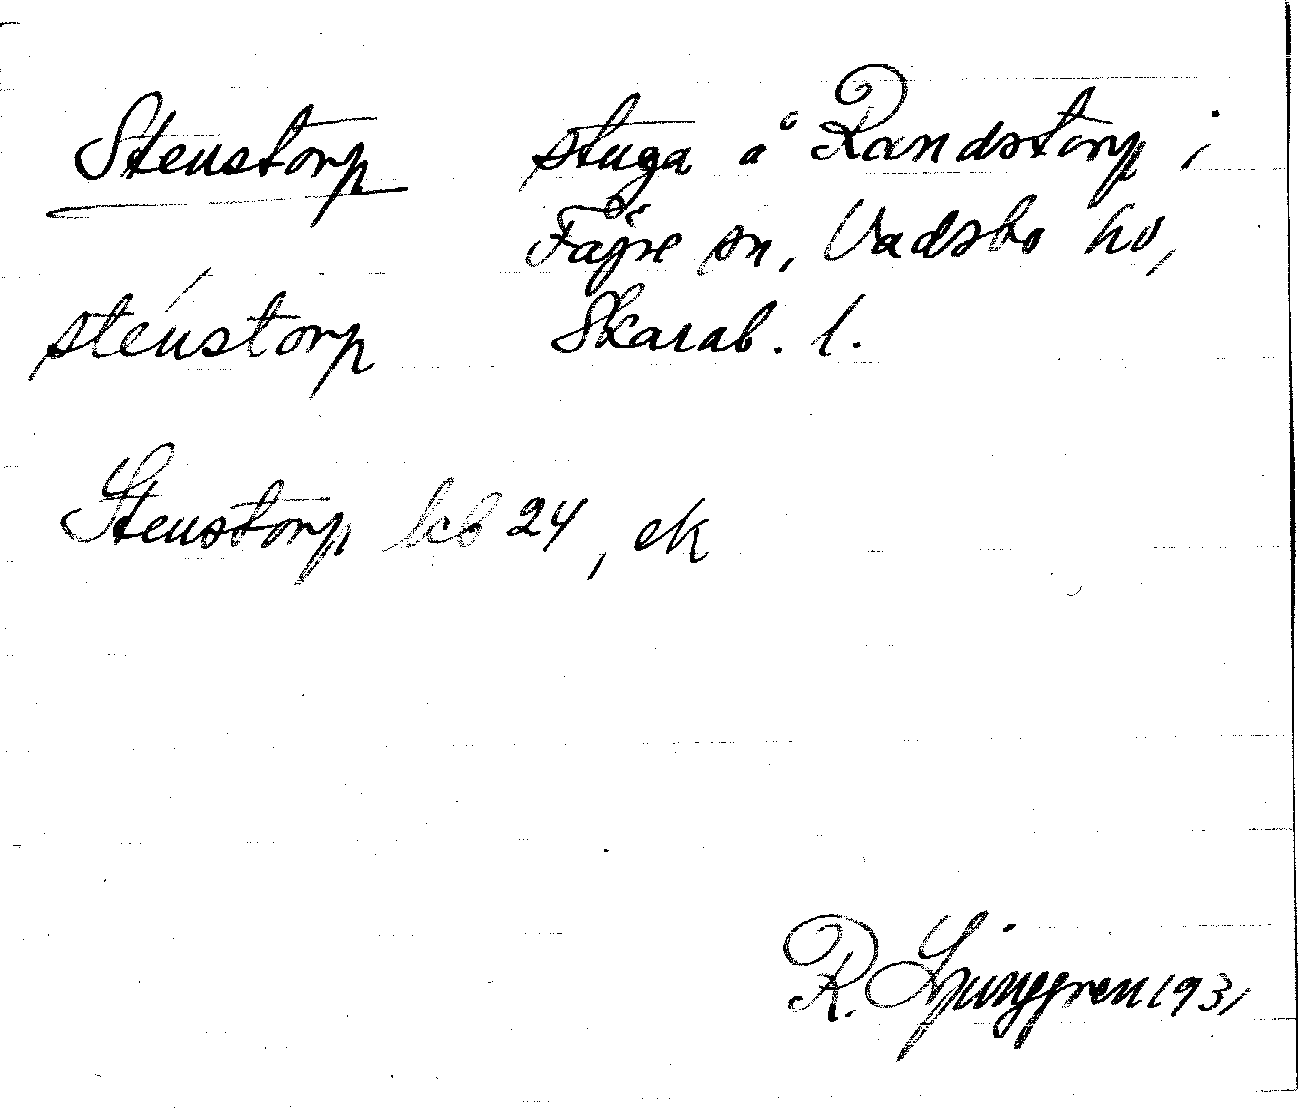 Stenstorp stuga å Randstorp i
Fägre sn, Vadsbo hd,
sténstorp Skarab. l.
Stenstorp lcb 24, ek
R. Ljunggren 1931